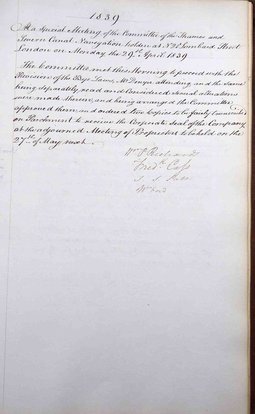 1839
At a Special Meeting of the Committee of the Thames and
Severn Canal Navigation holden at No 21 Lombard Street
London on Monday the 29th April 1839
The Committee met this Morning to proceed with the
Revision of the Bye Laws, Mr attending and the same
being separately read and considered several alterations
were made therein, and being arranged the Committee
approved them and ordered two Copies to be fairly
on Parchment to receive the Corporate Seal of the Company
at the adjourned Meeting of Proprietors to be held on the
27th of May next.
Wm
Fredk
J. S.
Wm